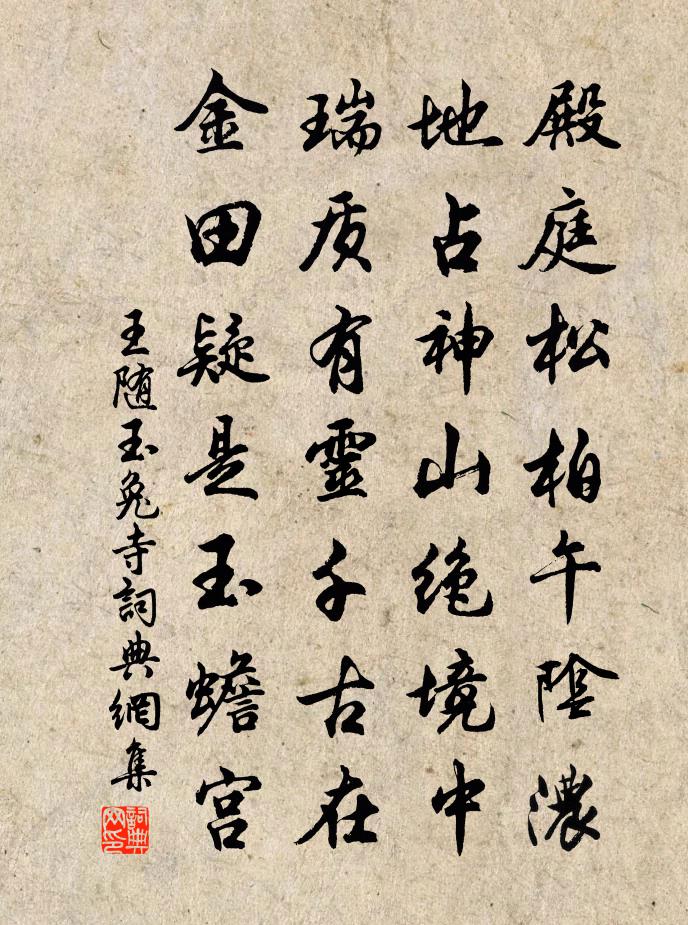 殿庭松柏午陰濃
地占神山绝境中
瑞质有靈千古在
金田疑是玉蟾宫
王随玉兔寺詞典網集
詞典网印